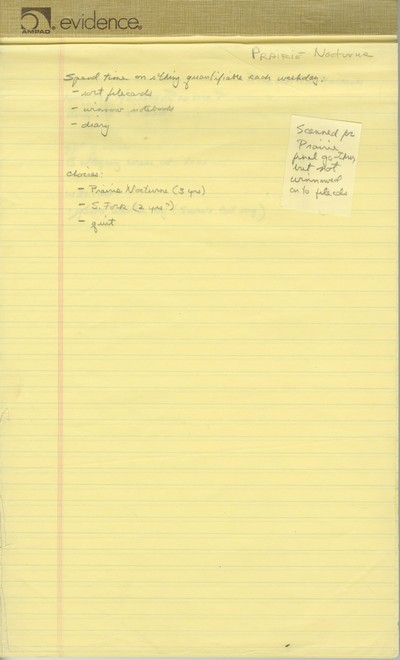 AMPAD
evidence®
PRAIRIE Nocturne
Spend time on s'thing quantifiable each weekday:
- sort filecards
- winnow notebooks
- diary
choices:
- Prairie Nocturne (3 yrs)
- S. Fork (2 yrs?)
- quit
Scanned for
Prairie,
final
but not
winnowed
onto filecards